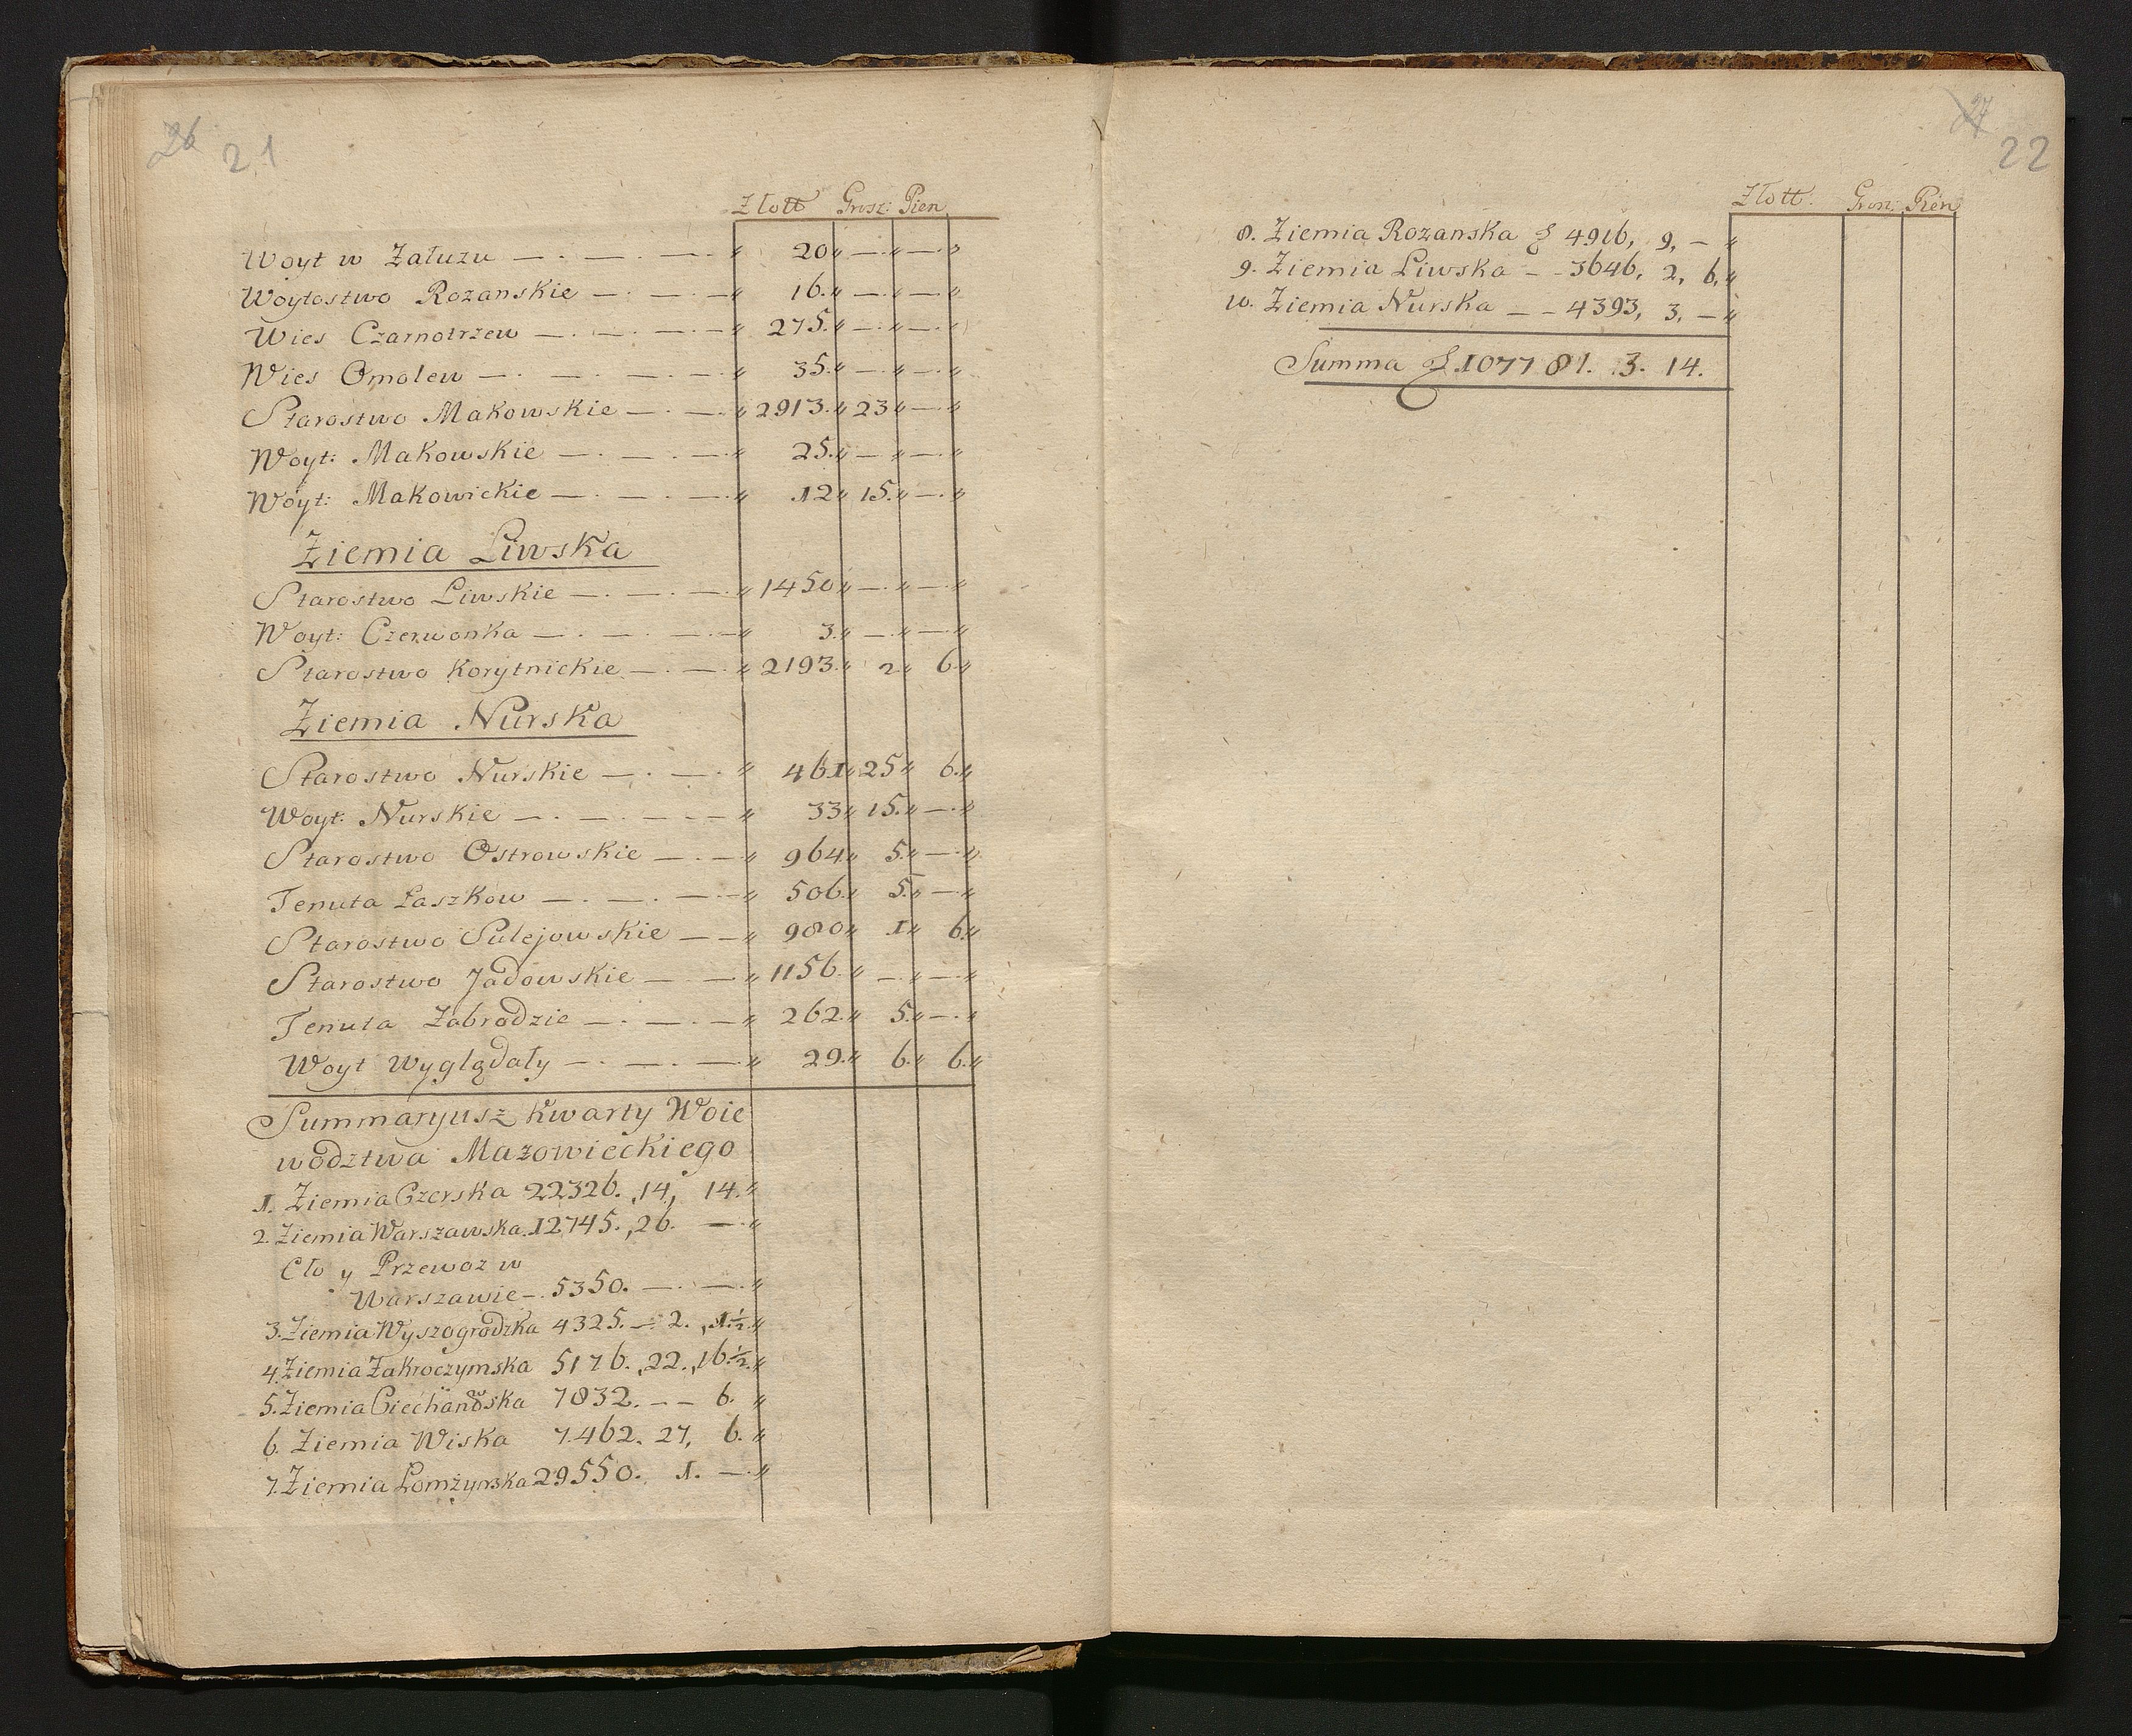 26 21
Złott Grosz: Pien
Woyt w Załuzu — . — . — . — " 20 " — . " — . "
Woytostwo Rozanskie — . — . — " 16. " — . " — . "
Wies Czarnotrzew — . — . — . — " 275. " — . " — . "
Wies Omolew — . — . — . — " 35. " — . " — . "
Starostwo Makowskie — . — . " 2913. " 23 " — . "
Woyt: Makowskie — . — . — . " 25. " — . " — . "
Woyt: Makowickie — . — . — . " 12 " 15. " — . "
Ziemia Liwska
Starostwo Liwskie — . — . — . " 1450 " — . " — . "
Woyt: Czerwonka — . — . — . — " 3. " — . " — . "
Starostwo Korytnickie — . — . " 2193. " 2 " 6. "
Ziemia Nurska
Starostwo Nurskie — . — . " 461 " 25 " 6. "
Woyt: Nurskie — . — . — . — " 33 " 15. " — . "
Starostwo Ostrowskie — . — " 964 " 5. " — . "
Tenuta Łaszkow — . — . — . — " 506. " 5. " — . "
Starostwo Sulejowskie — — " 980 " 1 " 6. "
Starostwo Jadowskie — — . " 1156. " — . " — . "
Tenuta Zabrodzie — . — . — " 262. " 5. " — . "
Woyt Wyglądały — . — . — . " 29. " 6. " 6. "
Summaryusz Kwarty Woie
wodztwa Mazowieckiego
1. Ziemia Czerska 22326. ,14, 14. "
2. Ziemia Warszawska. 12745. ,26. — . "
Cło y Przewoz w
Warszawie — . 5350. — . — . "
3. Ziemia Wyszogrodzka 4325. — 2. ,1.½. "
4. Ziemia Zakroczymska 5176. ,22. ,16.½. "
5. Ziemia Ciechanowska 7832. — — 6. "
6. Ziemia Wiska 7.462. 27, 6. "
7. Ziemia Łomżynska 29550. 1. — . "
27
22
Złott. Grosz: Pien
8. Ziemia Rozanska 4916, 9, — "
9. Ziemia Liwska — — 3646, 2, 6, "
10. Ziemia Nurska — — 4393, 3, — "
Summa 107781. 3. 14.